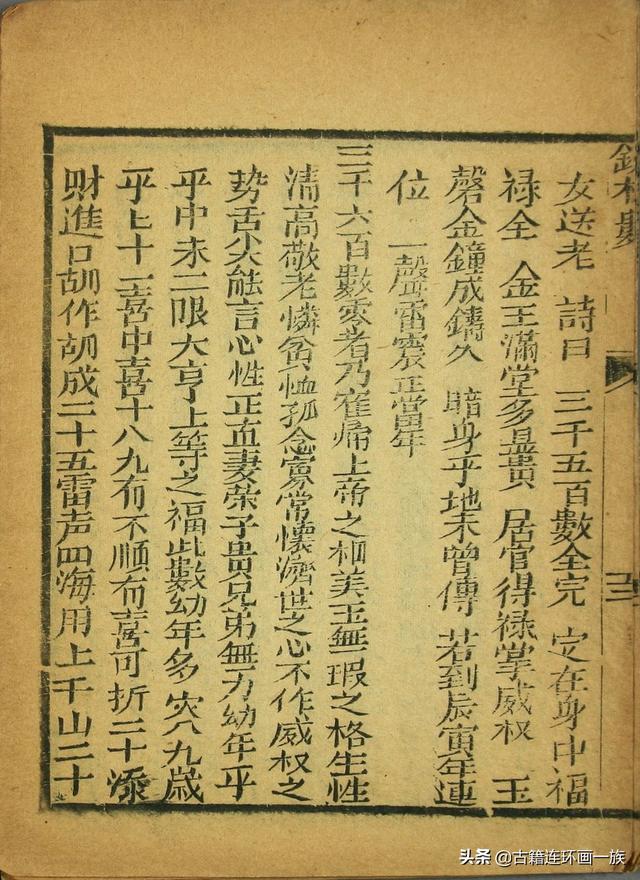 女送老 詩曰 三千五百數全完 定在身中福
禄全 金玉滿堂多显贵 居官得禄掌威权 玉
磬金鐘成鑄久 暗身乎地未曾傳 若到辰寅年連
位 一聲雷震正當年
三千六百數零者乃寉㷌上帝之相美玉無瑕之格生性
清高敬老憐貧恤孤念寡常懷濟世之心不作威权之
势舌尖能言心性正直妻荣子贵兄弟無力幼年平
乎中未二限大亨上等之福此數幼年多灾八九歳
乎七十一喜中喜十八九有不順有喜可折二十添
财進口胡作胡成二十五雷声四海用上千山二十
头条 @古籍连环画一族